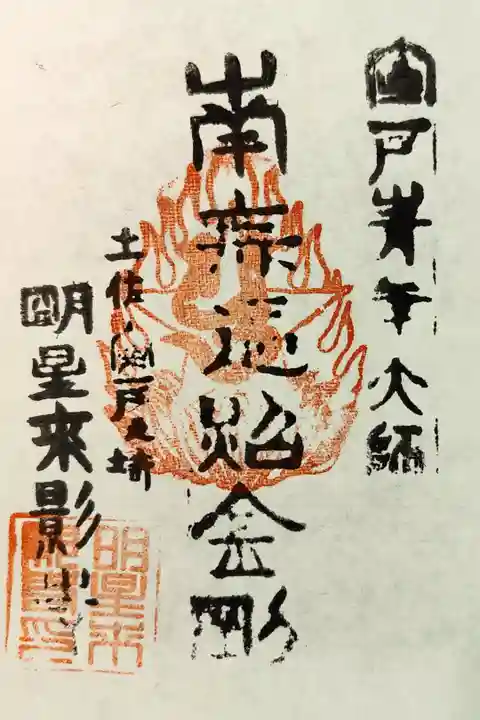 室戸青年大師
南無遍照金剛
土佐ノ室戸之埼
明星来影寺
明星来